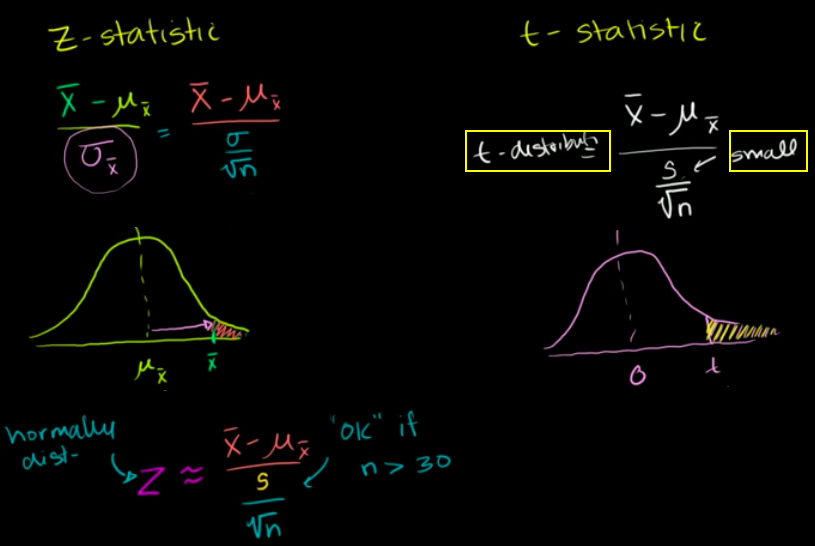 z-statistic
x̄ - μx̄ / σx̄ = x̄ - μx̄ / σ/√n
μx̄ x̄
normally
dist-
Z ≈ x̄ - μx̄ / s/√n
"OK" if
n > 30
t - statistic
t - distribut= x̄ - μx̄ / s/√n small
0 t